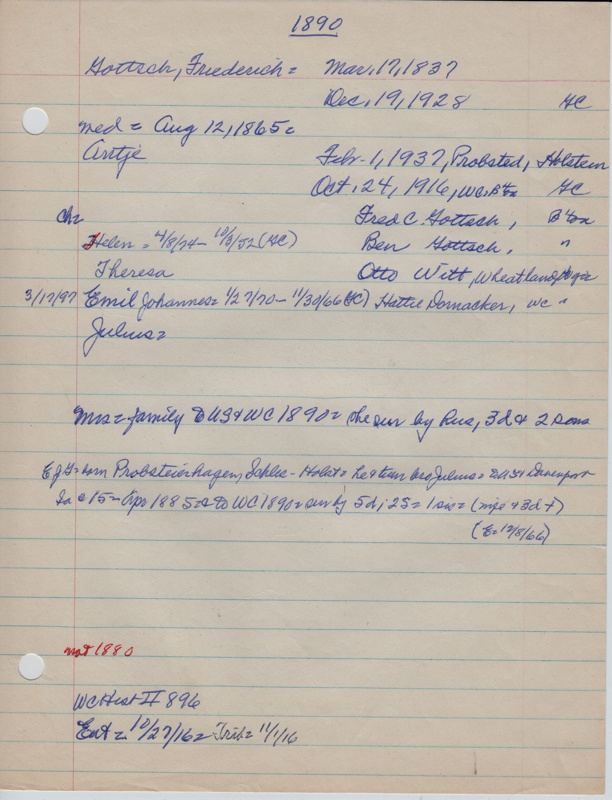 1890
Gottsch, Friederich = Mar. 17, 1837
Dec. 19, 1928 GC
med = Aug 12, 1865 =
Antje Feb. 1, 1937, Probsted, Holstein
Oct. 24, 1916, WC, B Co GC
Ch =
Fred C Gottsch, B Co
Helen = 4/8/74 - 10/3/52 (GC) Ben Gottsch, "
Theresa Otto Witt, Wheatland,
3/17/97 Emil Johannes = 1/27/70 - 11/30/66 (GC) Hattie Dornacker, WC "
Julius =
Mrs = family to US + WC 1890 = she sur by hus, 3 d + 2 sons
E J G = born Probsteierhagen, Schles - Holst = he + twin bro Julius = to US + Davenport
Ia @ 15 = Apr 1885 = to WC 1890 = sur by 5 d; 2 S = 1 sis = (wife + 3 d +)
(E = 12/8/66)
not 1880
WC Hist II 896
Ent = 10/27/16 = Trib = 11/1/16